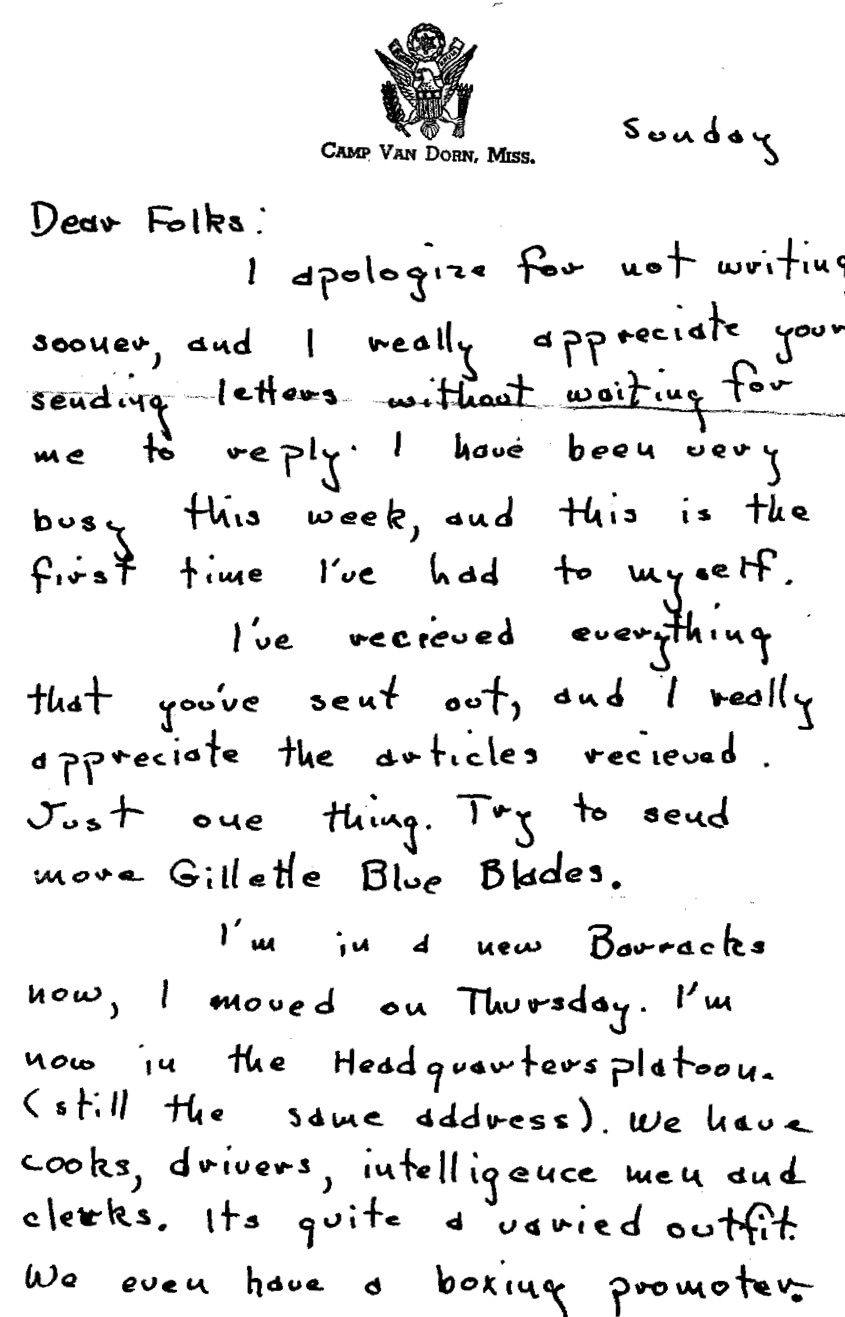 CAMP VAN DORN, MISS.
Sunday
Dear Folks:
I apologize for not writing
sooner, and I really appreciate your
sending letters without waiting for
me to reply. I have been very
busy this week, and this is the
first time I've had to myself.
I've recieved everything
that you've sent out, and I really
appreciate the articles recieved.
Just one thing. Try to send
more Gillette Blue Blades.
I'm in a new Barracks
now, I moved on Thursday. I'm
now in the Headquarters platoon.
(still the same address). We have
cooks, drivers, intelligence men and
clerks. Its quite a varied outfit.
We even have a boxing promoter.